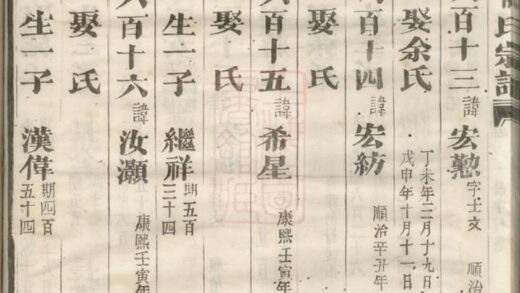 氏宗譜
百十三 諱宏勲 字士文 順治
娶余氏 丁未年二月十九日
戊申年十月十一日
百十四 諱宏紡 順治辛丑年
娶 氏
百十五 諱希星 康熙壬寅年
娶 氏
生一子 繼祥 期五百
三十四
百十六 諱汝灝 康熙壬寅年
娶 氏
生一子 漢偉 期四百
五十四